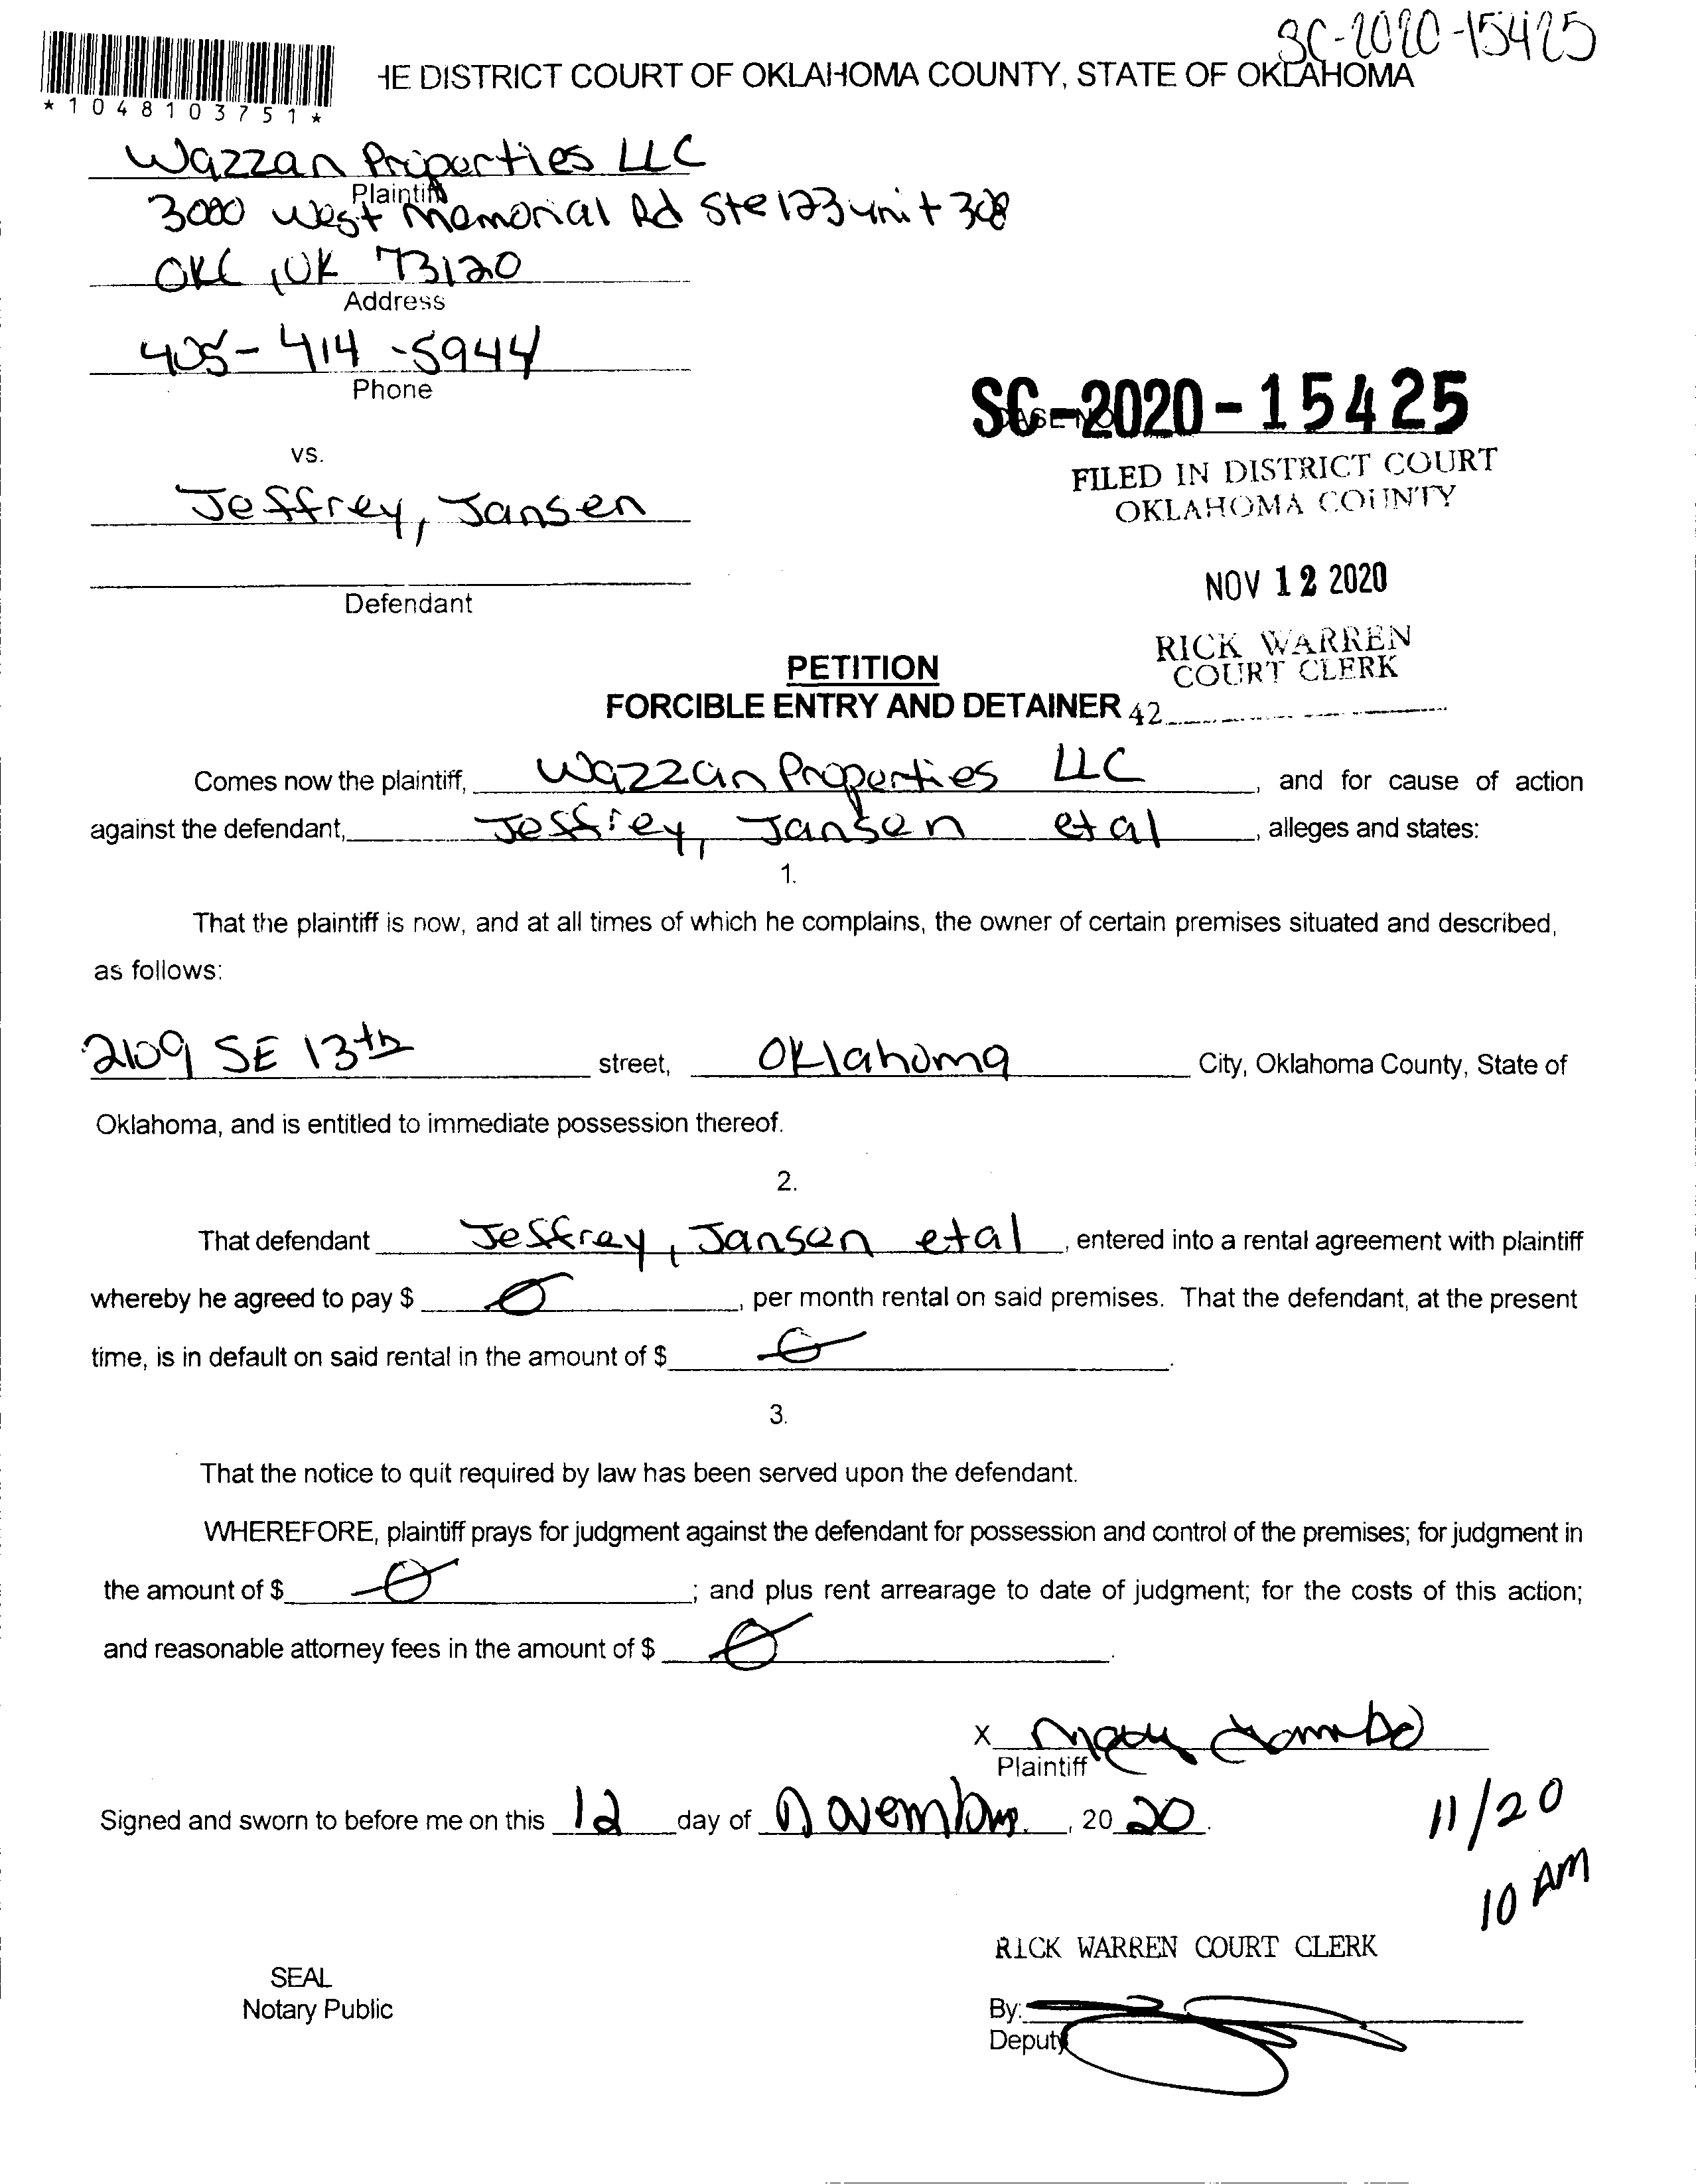 SC-2020-15425
HE DISTRICT COURT OF OKLAHOMA COUNTY, STATE OF OKLAHOMA
*1048103751*
Wazzan Properties LLC
Plaintiff
3000 West Memorial Rd Ste 123 unit 308
OKC, OK 73120
Address
405-414-5944
Phone
SC-2020-15425
CASE NO
vs.
FILED IN DISTRICT COURT
OKLAHOMA COUNTY
Jeffrey, Jansen
NOV 12 2020
Defendant
RICK WARREN
COURT CLERK
PETITION
FORCIBLE ENTRY AND DETAINER 42
Comes now the plaintiff, Wazzan Properties LLC, and for cause of action
against the defendant, Jeffrey, Jansen et al, alleges and states:
1.
That the plaintiff is now, and at all times of which he complains, the owner of certain premises situated and described,
as follows:
2109 SE 13th street, Oklahoma City, Oklahoma County, State of
Oklahoma, and is entitled to immediate possession thereof.
2.
That defendant Jeffrey, Jansen et al, entered into a rental agreement with plaintiff
whereby he agreed to pay $ 0, per month rental on said premises. That the defendant, at the present
time, is in default on said rental in the amount of $ 0.
3.
That the notice to quit required by law has been served upon the defendant.
WHEREFORE, plaintiff prays for judgment against the defendant for possession and control of the premises; for judgment in
the amount of $ 0; and plus rent arrearage to date of judgment; for the costs of this action;
and reasonable attorney fees in the amount of $ 0.
X
Plaintiff
Signed and sworn to before me on this 12 day of November, 2020.
11/20
10 AM
RICK WARREN COURT CLERK
SEAL
Notary Public
By:
Deputy